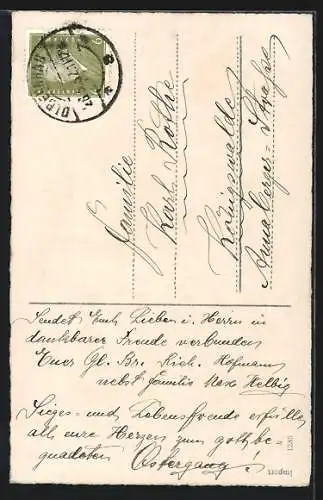 Familie
Karl Rothe
Königswalde
Annaberger-Strasse
Sendet Euch Lieben i. Herrn in
dankbarer Freude verbunden
Euer Gl. Br. Rich. Hofmann
nebst Familie Max Helbig
Sieges- und Lebensfreude erfülle
all eure Herzen zum gottbe-
gnadeten Ostergang!
1285